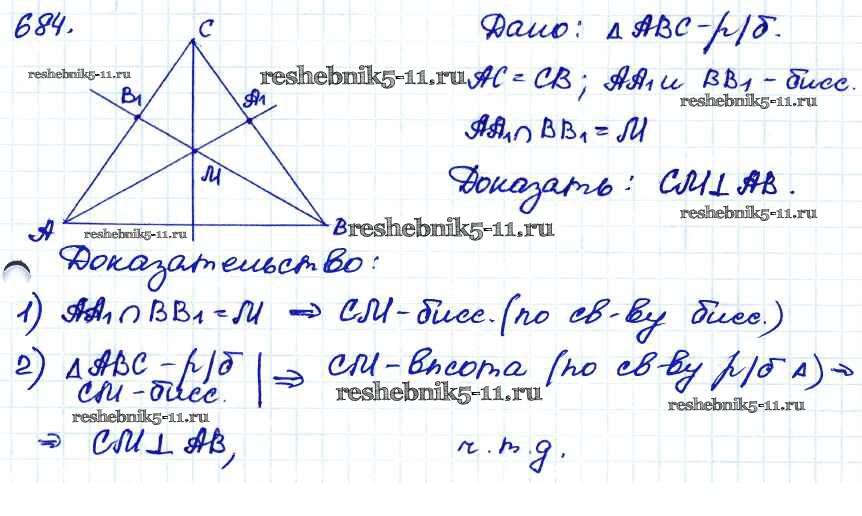 684.
C
Дано: △ABC – р/б.
reshebnik5-11.ru
reshebnik5-11.ru
AC = CB; AA₁ и BB₁ – бисс.
B₁
A₁
reshebnik5-11.ru
AA₁ ∩ BB₁ = M
M
Доказать: CM ⊥ AB.
reshebnik5-11.ru
A
reshebnik5-11.ru
B
reshebnik5-11.ru
Доказательство:
1) AA₁ ∩ BB₁ = M ⇒ CM – бисс. (по св-ву бисс.)
2) △ABC – р/б | ⇒ CM – высота (по св-ву р/б △) ⇒
CM – бисс.
reshebnik5-11.ru
reshebnik5-11.ru
reshebnik5-11.ru
⇒ CM ⊥ AB, ч.т.д.